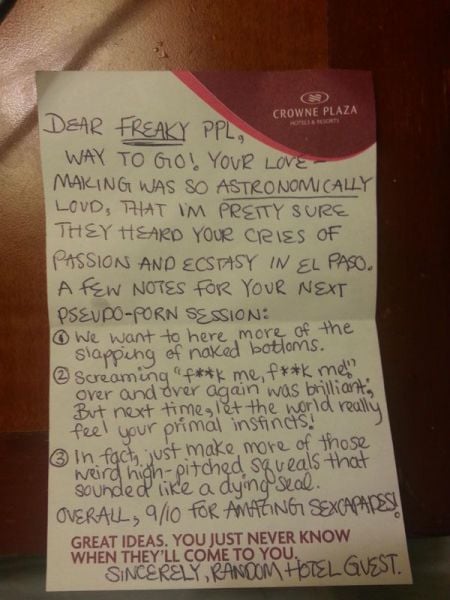 CROWNE PLAZA
HOTELS & RESORTS
DEAR FREAKY PPL,
WAY TO GO! YOUR LOVE-
MAKING WAS SO ASTRONOMICALLY
LOUD, THAT I'M PRETTY SURE
THEY HEARD YOUR CRIES OF
PASSION AND ECSTASY IN EL PASO.
A FEW NOTES FOR YOUR NEXT
PSEUDO-PORN SESSION:
① We want to here more of the
slapping of naked bottoms.
② Screaming "f**k me, f**k me!"
over and over again was brilliant.
But next time, let the world really
feel your primal instincts!
③ In fact, just make more of those
weird high-pitched squeals that
sounded like a dying seal.
OVERALL, 9/10 FOR AMAZING SEXCAPADES!
GREAT IDEAS. YOU JUST NEVER KNOW
WHEN THEY'LL COME TO YOU.
SINCERELY, RANDOM HOTEL GUEST.